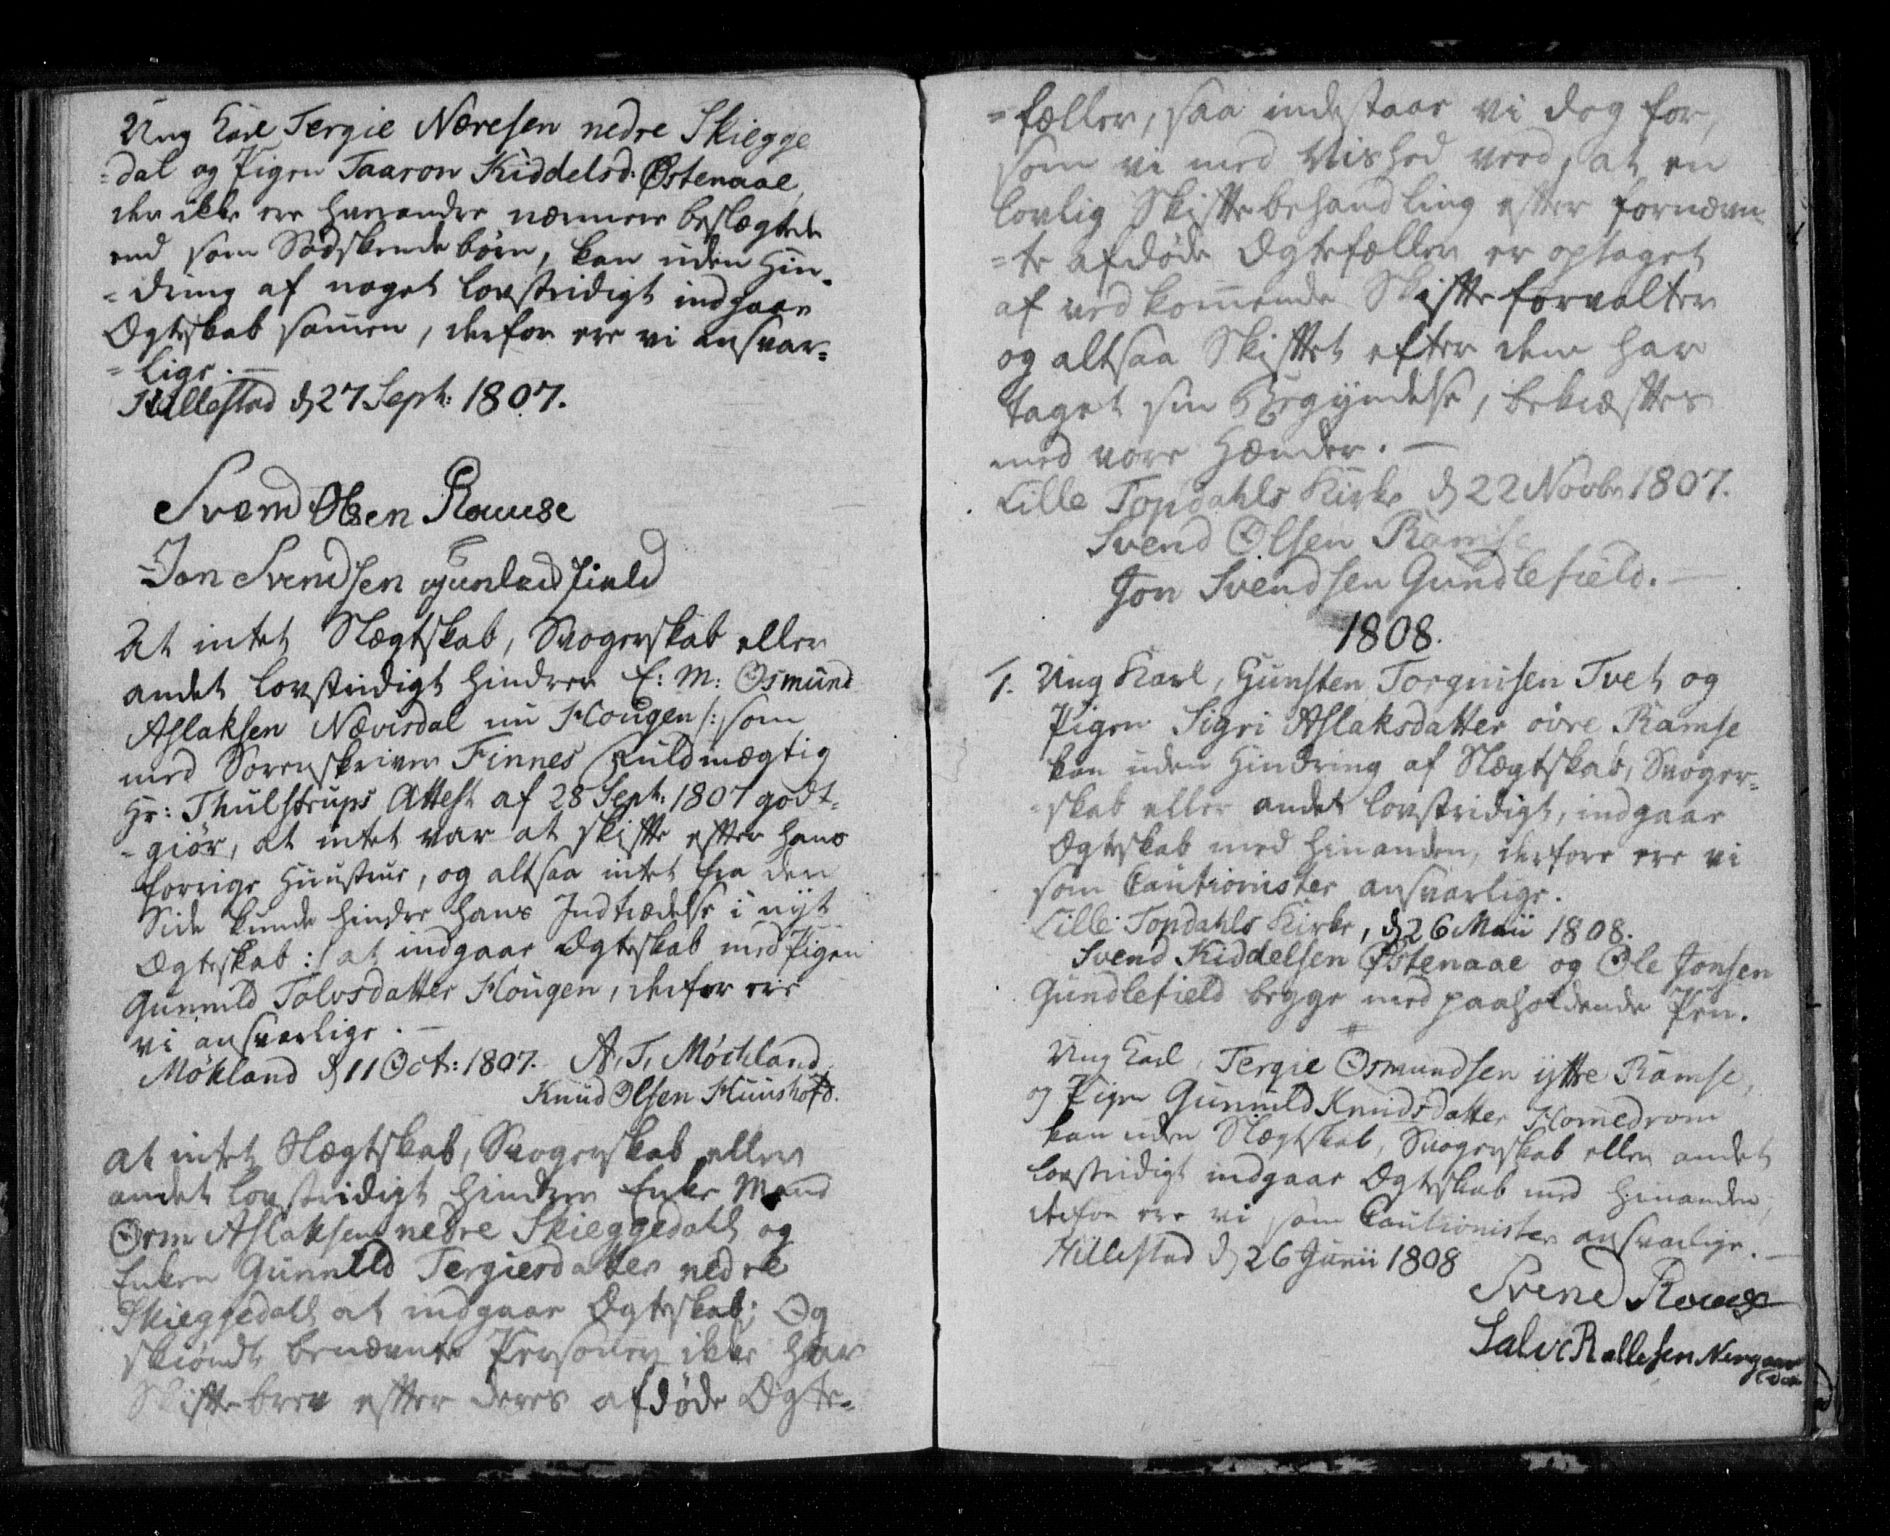 Ung Karl Tergie Neresen nedre Skiegge
=dal og Pigen Taaron Kiddelsd: Østenaae,
der ikke ere hverandre nærmere beslægtede
end som Sødskendebørn, kan uden Hin=
=dring af noget lovstridigt indgaae
Ægteskab samen, derfor ere vi ansvar=
=lige. —
Hillestad d 27 Sept: 1807.
Svend Olsen Ramse
Jon Svendsen Gunlefield
At intet Slægtskab, Svogerskab eller
andet lovstridigt hindrer E: M: Osmund
Aslaksen Nævisdal nu Hougen /: som
med Sorenskriver Finnes Fuldmægtig
Hr: Thulstrups Attest af 28 Sept: 1807 godt=
=giør, at intet var at skifte efter hans
forrige Huustrue, og altsaa intet fra den
Side kunde hindre hans Indtrædelse i nyt
Ægteskab :/ at indgaae Ægteskab med Pigen
Gunnild Tolvsdatter Hougen, derfor ere
vi ansvarlige. —
Møkland d 11 Oct: 1807. A. T. Møckland
Knud Olsen Huushofd.
At intet Slægtskab, Svogerskab eller
andet lovstridigt hindrer Enke Mand
Orm Aslaksen nedre Skieggedahl og
Enken Gunnild Tergiesdatter nedre
Skieggedahl at indgaae Ægteskab; Og
skiøndt benævnte Personer ikke har
Skiftebrev efter deres afdøde Ægte=
=fæller, saa indestaae vi dog for,
som vi med Vished veed, at en
lovlig Skiftebehandling efter fornævn
=te afdøde Ægtefæller er optaget
af vedkommende Skifteforvalter
og altsaa Skiftet efter dem har
taget sin Begyndelse, bekræftes
med vore Hænder. —
Lille Topdahls Kirke d 22 Novbr 1807.
Svend Olsen Ramse
Jon Svendsen Gundlefield. —
1808.
1. Ung Karl, Gunsten Torgrissen Tvet og
Pigen Sigri Aslaksdatter øvre Ramse
kan uden Hindring af Slægtskab, Svoger=
=skab eller andet lovstridigt, indgaae
Ægteskab med hinanden, derfore ere vi
som Cautionister ansvarlige.
Lille Topdahls Kirke, d 26 Maii 1808.
Svend Kiddelsen Østenaae og Ole Jonsen
Gundlefield begge med paaholdende Pen.
Ung Karl, Tergie Osmundsen yttre Ramse,
og Pigen Gunnild Knudsdatter Homedrom
kan uden Slægtskab, Svogerskab eller andet
lovstridigt indgaae Ægteskab med hinanden,
derfor ere vi som Cautionister ansvarlige. —
Hillestad d 26 Junii 1808
Svend Ramse
Salve Rallesen Nergaar
den